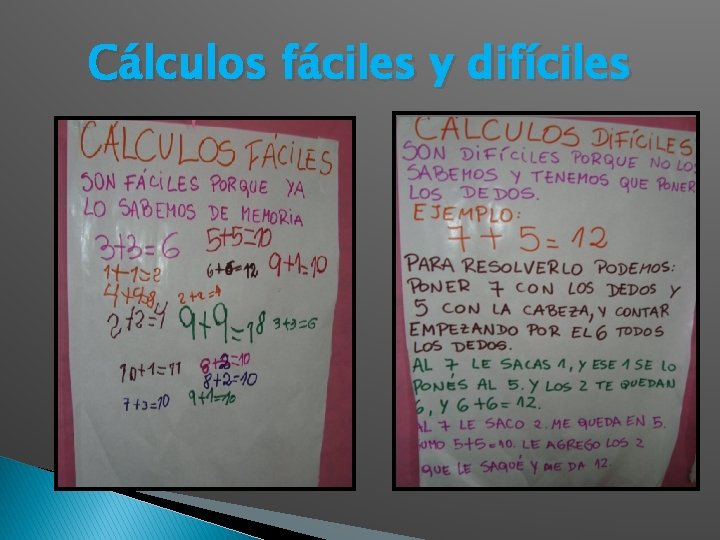 Cálculos fáciles y difíciles
CÁLCULOS FÁCILES
SON FÁCILES PORQUE YA
LO SABEMOS DE MEMORIA
3+3=6 5+5=10
1+1=2 6+6=12 9+1=10
4+4=8 2+2=4
2+2=4 9+9=18 3+3=6
10+1=11 8+2=10
8+2=10
7+3=10 9+1=10
CÁLCULOS DIFÍCILES
SON DIFÍCILES PORQUE NO LO
SABEMOS Y TENEMOS QUE PONER
LOS DEDOS.
EJEMPLO:
7+5=12
PARA RESOLVERLO PODEMOS:
PONER 7 CON LOS DEDOS Y
5 CON LA CABEZA, Y CONTAR
EMPEZANDO POR EL 6 TODOS
LOS DEDOS.
AL 7 LE SACAS 1, Y ESE 1 SE LO
PONÉS AL 5. Y LOS 2 TE QUEDAN
6, Y 6+6=12.
AL 7 LE SACO 2. ME QUEDA EN 5.
SUMO 5+5=10. LE AGREGO LOS 2
QUE LE SAQUÉ Y ME DA 12.